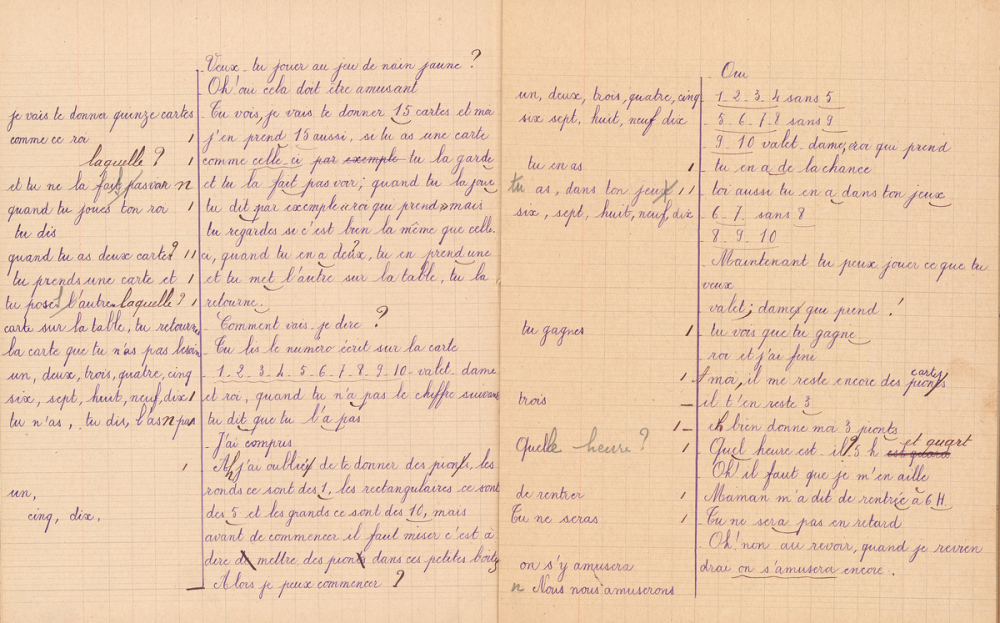 Veux-tu jouer au jeu de nain jaune ?
Oh! oui cela doit être amusant
je vais te donner quinze cartes
Tu vois, je vais te donner 15 cartes et ma
comme ce roi
j'en prend 15 aussi, si tu as une carte
laquelle ?
comme celle-ci par exemple tu la garde
et tu ne la fait pas voir n
et tu la fait pas voir; quand tu la joue
quand tu joues ton roi
tu dit par exemple « roi qui prend » mais
tu dis
tu regardes si c'est bien la même que celle-
quand tu as deux cartes ?
ci, quand tu en a deux ?, tu en prend une
tu prends une carte et
et tu met l'autre sur la table, tu la
tu poses l'autre laquelle ?
retourne.
carte sur la table, tu retournes
Comment vais-je dire ?
la carte que tu n'as pas besoin
Tu lis le numéro écrit sur la carte
un, deux, trois, quatre, cinq
1-2-3-4-5-6-7-8-9-10-valet-dame
six, sept, huit, neuf, dix
et roi, quand tu n'a pas le chiffre suivant
tu n'as, tu dis, l'as n pas
tu dit que tu l'a pas
- J'ai compris
- Ah j'ai oublié de te donner des pions, les
un,
ronds ce sont des 1, les rectangulaires ce sont
cinq, dix,
des 5 et les grands ce sont des 10, mais
avant de commencer il faut miser c'est à
dire de mettre des pions dans ces petites boîtes
- Alors je peux commencer ?
Oui
un, deux, trois, quatre, cinq
1-2-3-4 sans 5
six sept, huit, neuf dix
5-6-7-8 sans 9
9-10 valet-dame, roi qui prend
tu en as
tu en a de la chance
tu as, dans ton jeux
toi aussi tu en a dans ton jeux
six, sept, huit, neuf, dix
6-7 sans 8
8-9-10
- Maintenant tu peux jouer ce que tu
veux
valet, dame que prend !
tu gagnes
tu vois que tu gagne
roi et j'ai fini
cartes
moi, il me reste encore des pions
trois
il t'en reste 3
eh bien donne moi 3 pionts
Quelle heure ?
Quel heure est-il ? 5 h est quard et quart
Oh! il faut que je m'en aille
de rentrer
Maman m'a dit de rentrée à 6 H.
Tu ne seras
Tu ne sera pas en retard
Oh! non au revoir, quand je revien
on s'y amusera
drai on s'amusera encore.
n Nous nous amuserons